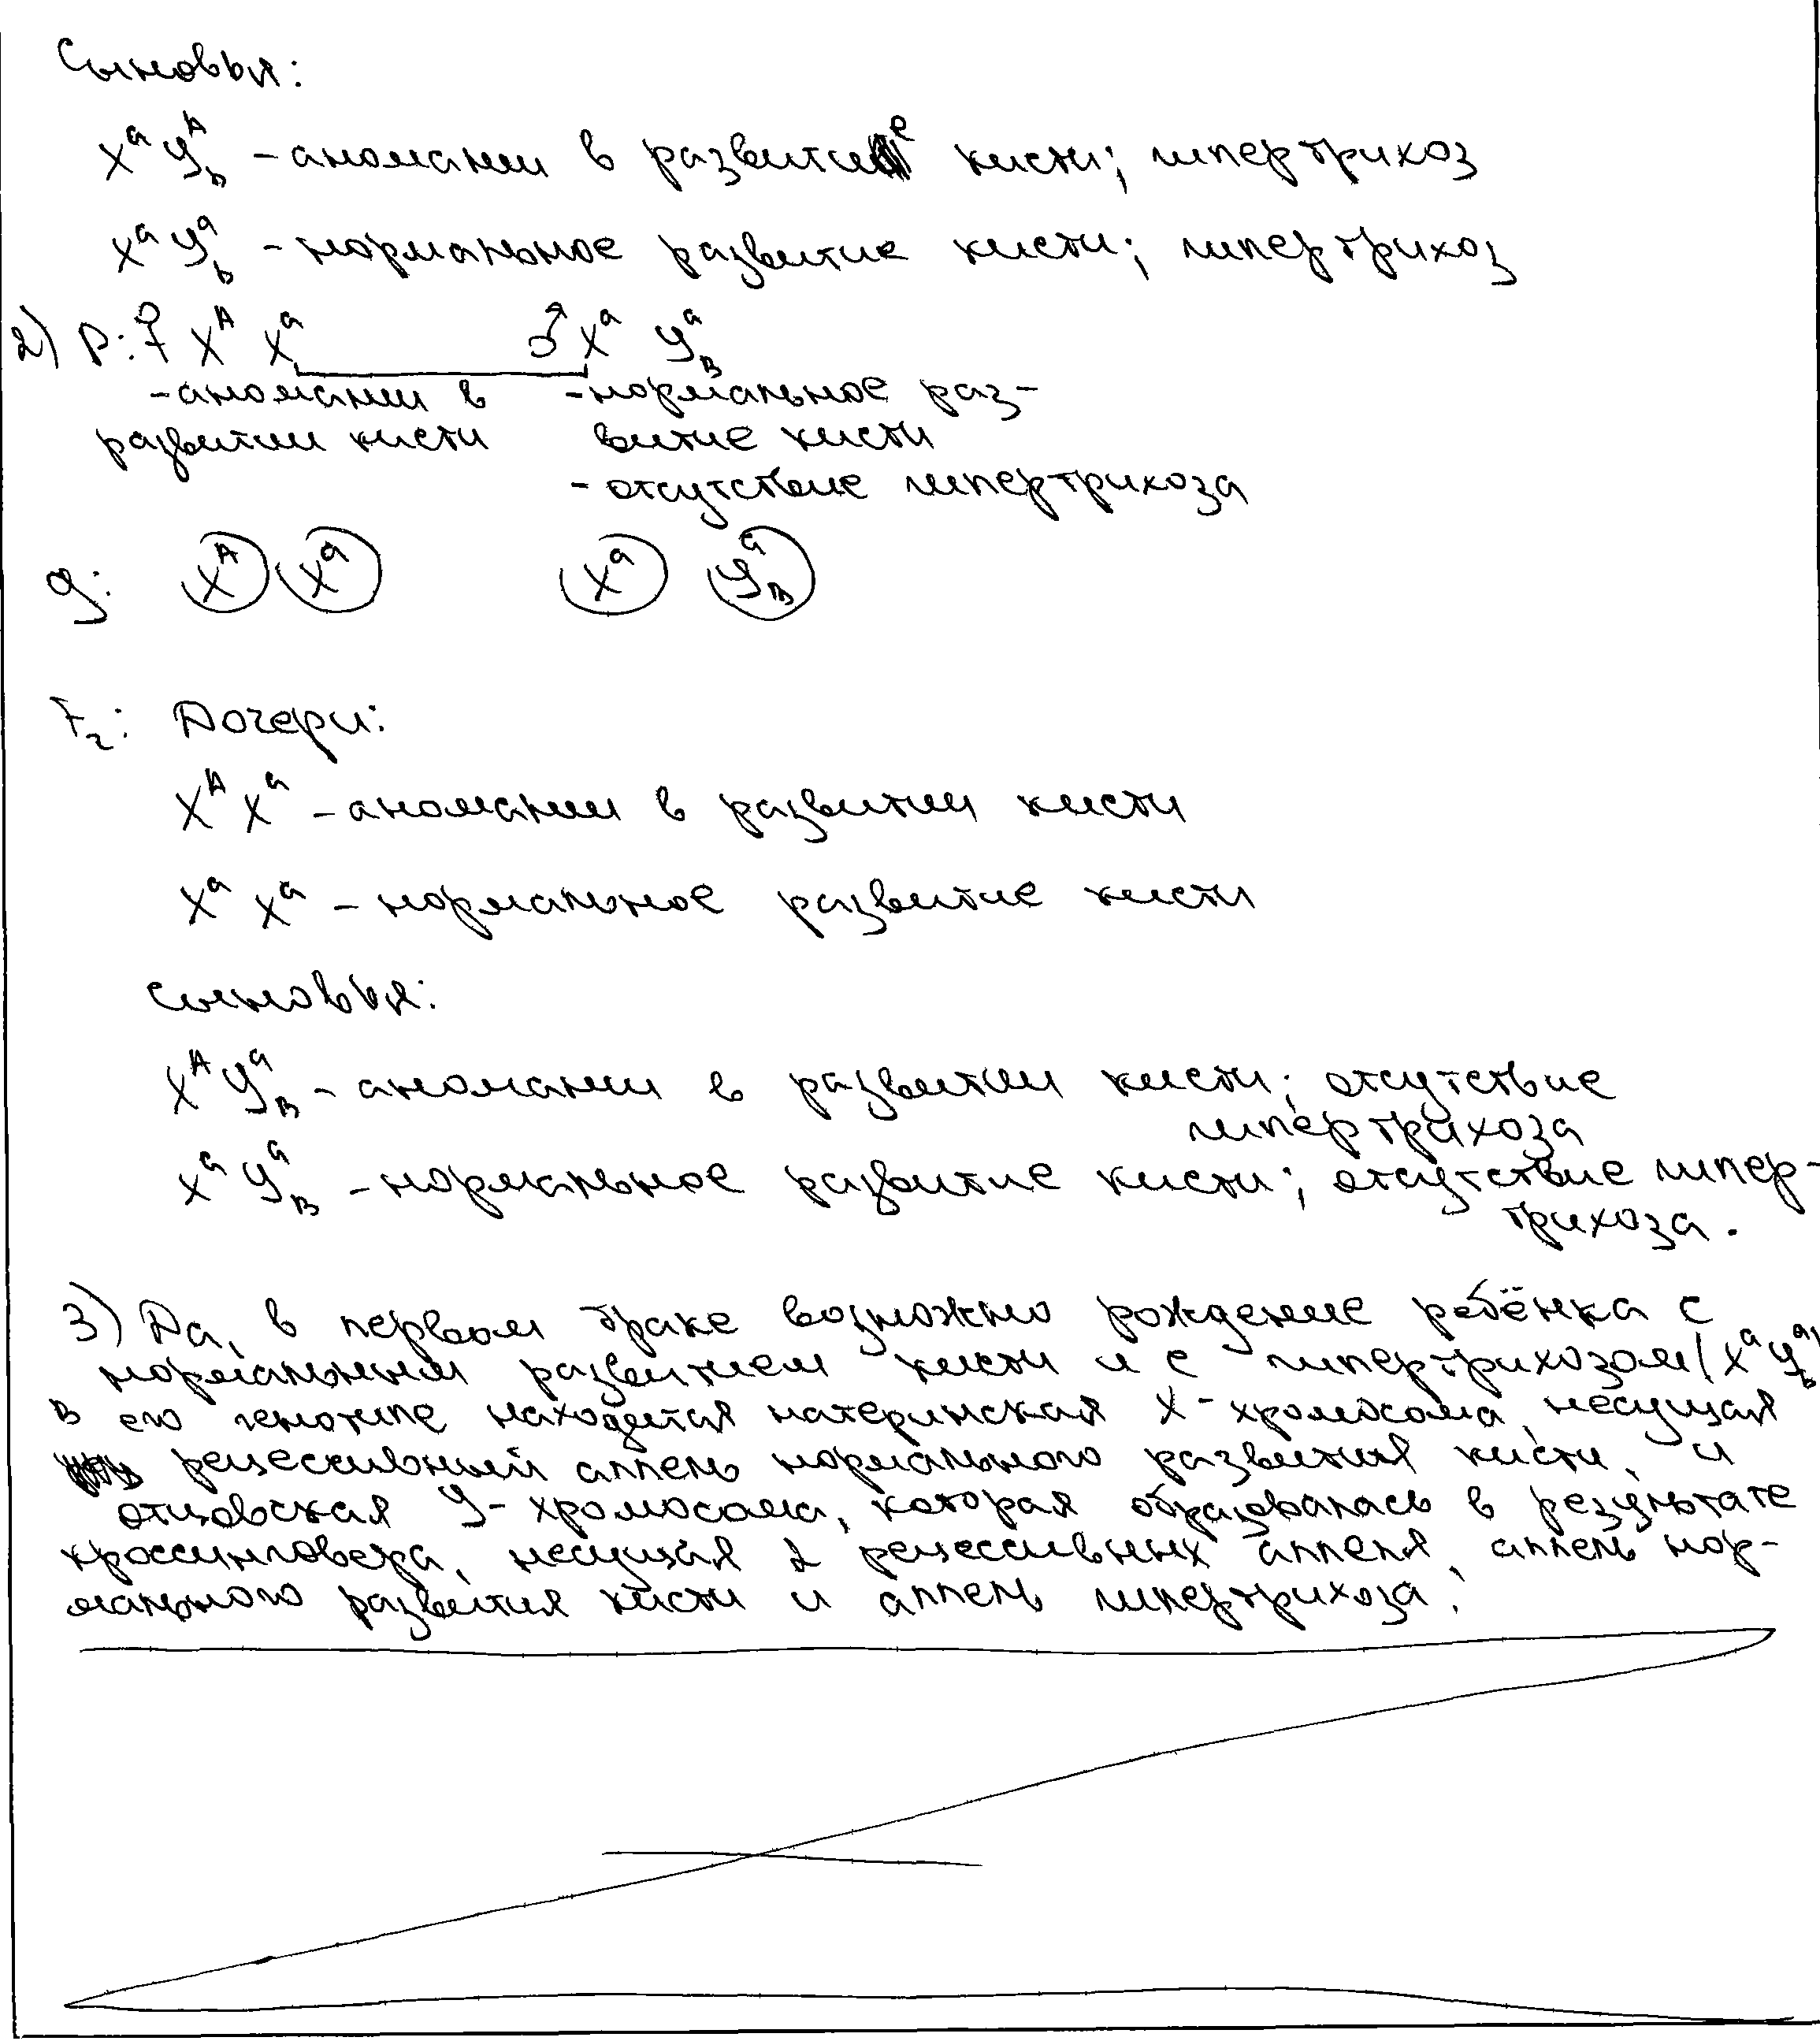 Сыновья:
XᵃYᴬb - аномалии в развитие кисти; гипертрихоз
XᵃYᵃb - нормальное развитие кисти; гипертрихоз
2) P: ♀ Xᴬ Xᵃ ♂ Xᵃ YᵃB
- аномалии в - нормальное раз-
развитии кисти витие кисти
- отсутствие гипертрихоза
g: Xᴬ Xᵃ Xᵃ YᵃB
F₂: Дочери:
XᴬXᵃ - аномалии в развитии кисти
XᵃXᵃ - нормальное развитие кисти
сыновья:
XᴬYᵃB - аномалии в развитии кисти; отсутствие
гипертрихоза
XᵃYᵃB - нормальное развитие кисти; отсутствие гипер-
трихоза.
3) Да, в первом браке возможно рождение ребёнка с
нормальным развитием кисти и с гипертрихозом (XᵃYᵃb)
В его генотипе находится материнская X-хромосома, несущая
рецессивный аллель нормального развития кисти, и
отцовская Y-хромосома, которая образовалась в результате
кроссинговера, несущая 2 рецессивных аллеля: аллель нор-
мального развития кисти и аллель гипертрихоза.